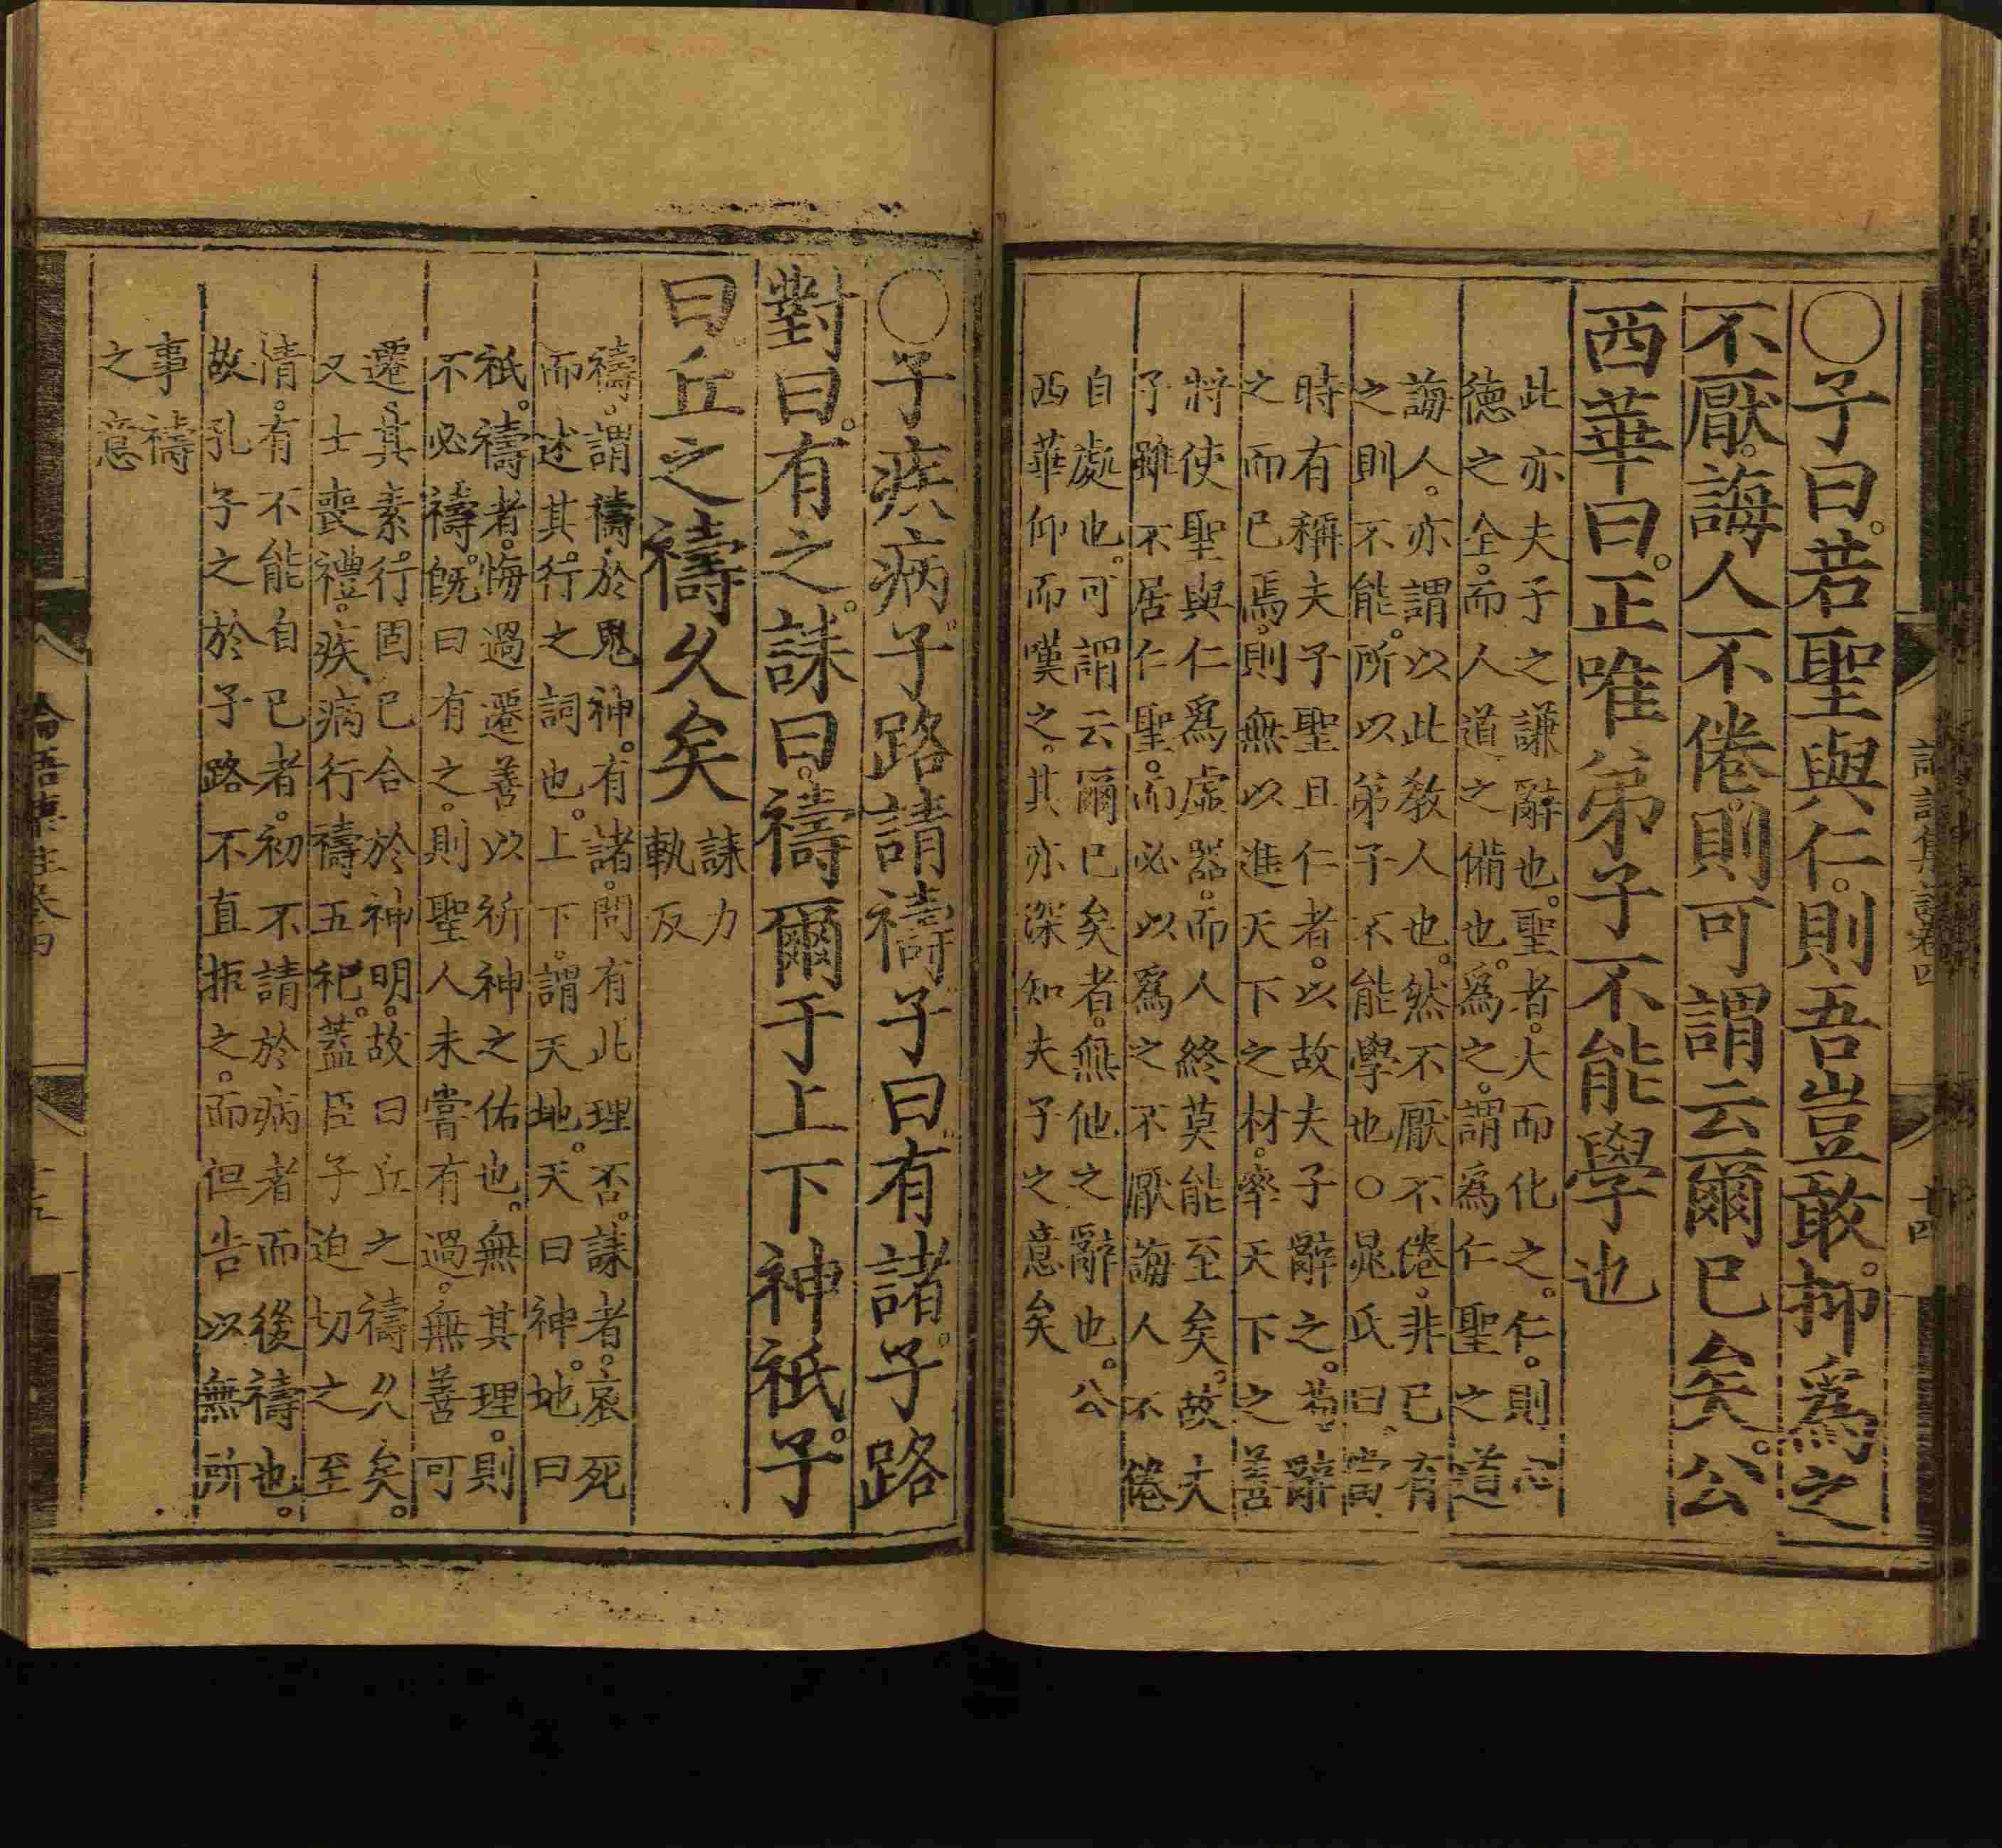 ○子曰。若聖與仁。則吾豈敢。抑爲之
不厭。誨人不倦。則可謂云爾已矣。公
西華曰。正唯弟子不能學也
此亦夫子之謙辭也。聖者。大而化之。仁。則心
德之全。而人道之備也。爲之。謂爲仁聖之道
誨人。亦謂以此敎人也。然不厭不倦。非已有
之則不能。所以弟子不能學也○晁氏曰。當
時有稱夫子聖且仁者。以故夫子辭之。苟辭
之而已焉。則無以進天下之材。率天下之善
將使聖與仁爲虛器。而人終莫能至矣。故夫
子雖不居仁聖。而必以爲之不厭誨人不倦
自處也。可謂云爾已矣者。無他之辭也。公
西華仰而嘆之。其亦深知夫子之意矣
十四
○子疾病。子路請禱子曰有諸。子路
對曰。有之。誄曰。禱爾于上下神祇子。
曰丘之禱久矣
誄力
軌反
禱。謂禱於鬼神。有諸。問有此理否。誄者。哀死
而述其行之詞也。上下。謂天地。天曰神。地曰
祇。禱者。悔過遷善以祈神之佑也。無其理。則
不必禱。旣曰有之。則聖人未嘗有過。無善可
遷。其素行固已合於神明。故曰丘之禱久矣。
又士喪禮。疾病行禱五祀。蓋臣子迫切之至
情。有不能自已者。初不請於病者而後禱也。
故孔子之於子路不直拒之。而但告以無所
事禱
之意